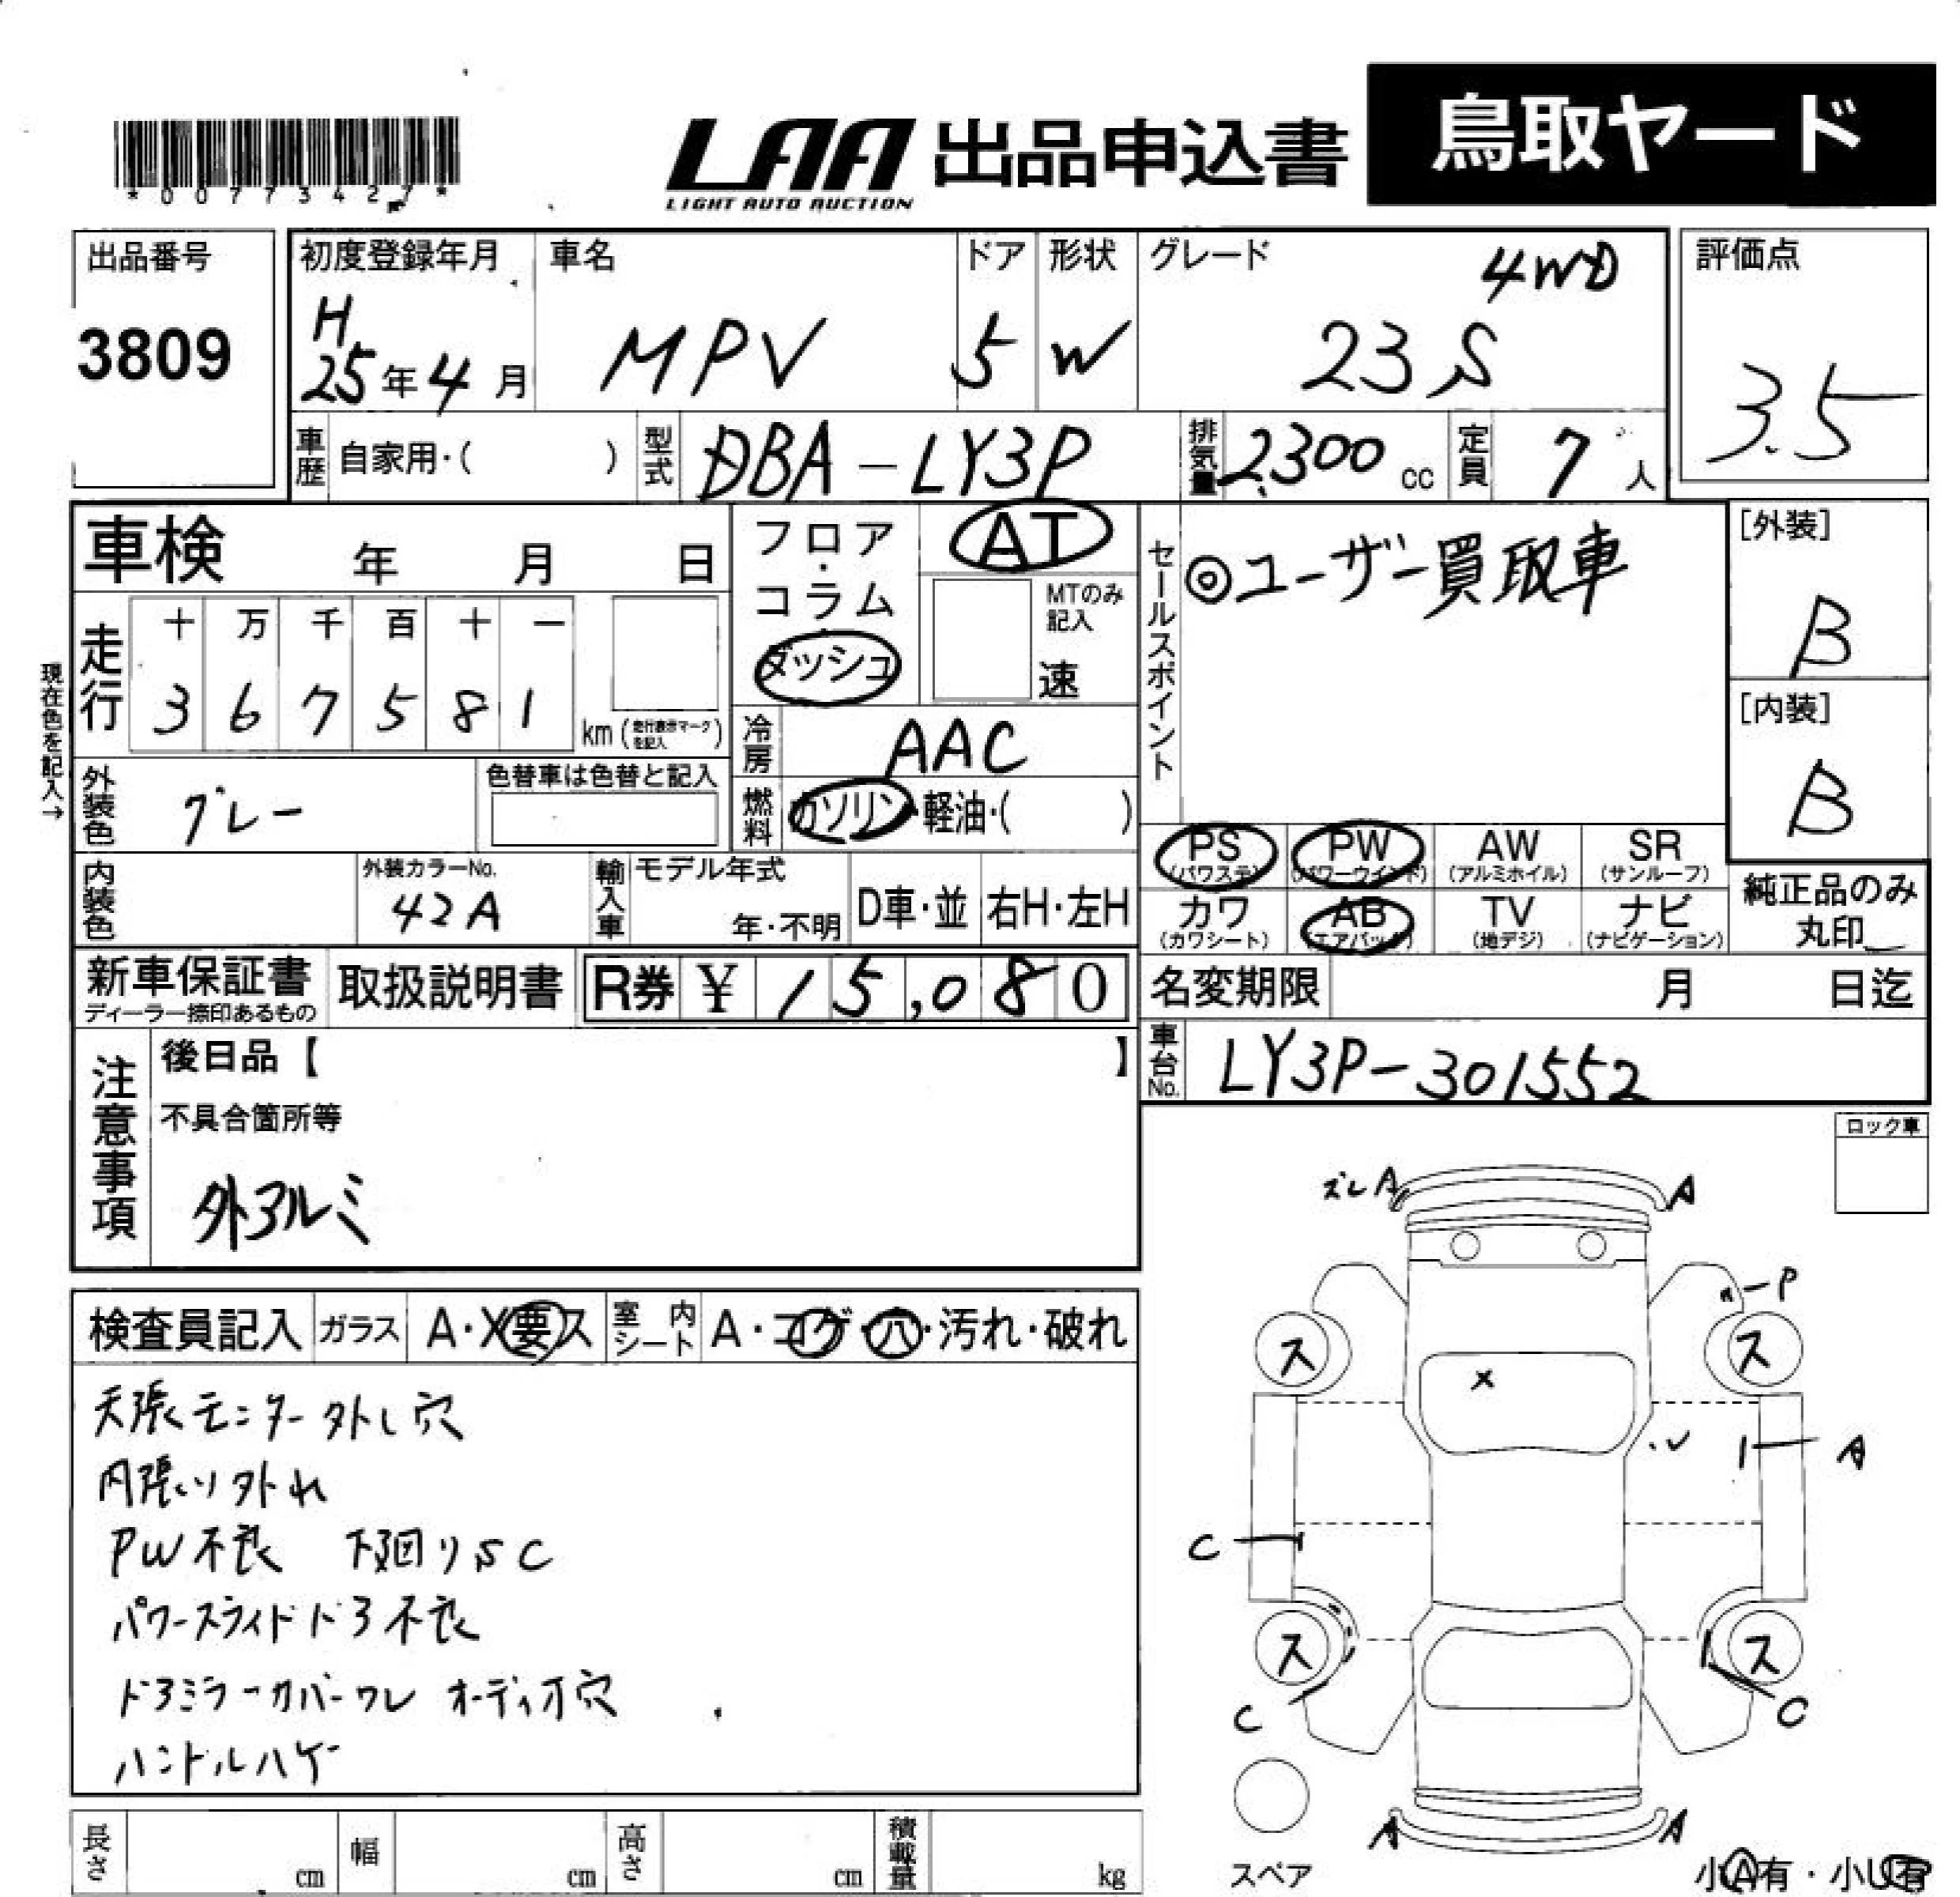 *00773427*
LAA 出品申込書 鳥取ヤード
LIGHT AUTO AUCTION
出品番号 初度登録年月 車名 ドア 形状 グレード 4WD 評価点
3809 H 25年4月 MPV 5 W 23S 3.5
車歴 自家用・( ) 型式 DBA-LY3P 排気量 2,300 cc 定員 7 人
車検 年 月 日 フロア・コラム ダッシュ AT
MTのみ記入 速
セールスポイント ◎ユーザー買取車
[外装]
B
[内装]
B
現在色を記入→
走行 十 万 千 百 十 一
3 6 7 5 8 1 km(走行表示マークを記入)
冷房 AAC
外装色 グレー 色替車は色替と記入 燃料 ガソリン・軽油・( )
PS (パワステ) PW (パワーウインド) AW (アルミホイル) SR (サンルーフ)
カワ (カワシート) AB (エアバック) TV (地デジ) ナビ (ナビゲーション)
純正品のみ
丸印
内装色 外装カラーNo. 42A 輸入車 モデル年式 年・不明 D車・並 右H・左H
新車保証書 ディーラー捺印あるもの 取扱説明書 R券 ¥ 15,080 名変期限 月 日迄
車台No. LY3P-301552
注意事項 後日品【 】
不具合箇所等
外アルミ
ロック車
検査員記入 ガラス A・X要ス 室内シート A・コゲ・穴・汚れ・破れ
天張モニター外し穴
内張り外れ
PW不良 下廻りSC
パワースライドドア不良
ドアミラーカバーワレ オーディオ穴
ハンドルハゲ
ズレ A A
P
ス ス
X
A
C
ス ス
C C
A A
スペア 小A有・小U有
長さ cm 幅 cm 高さ cm 積載量 kg